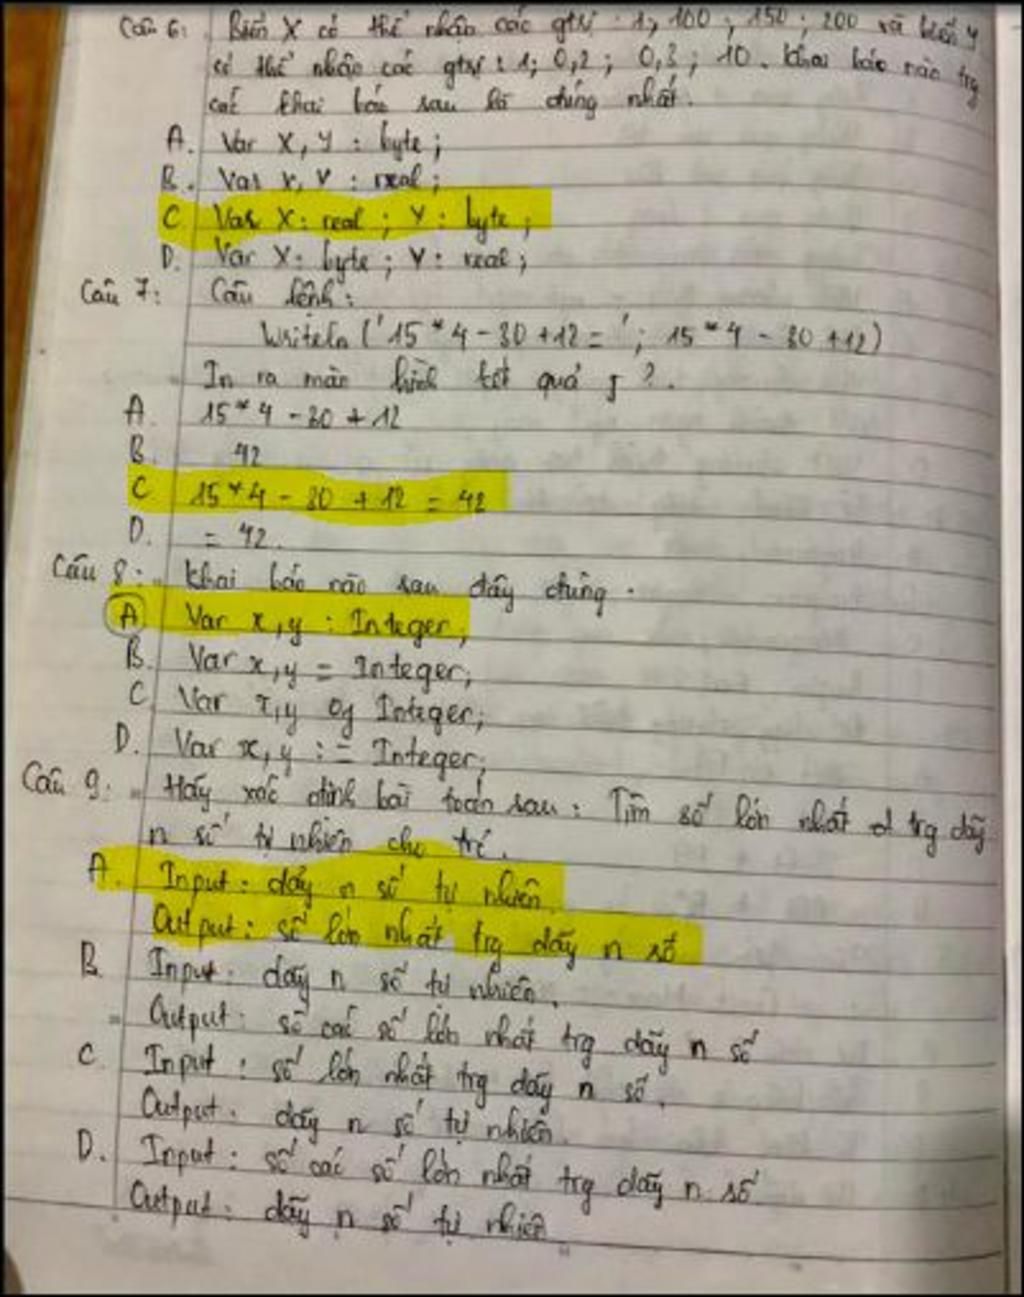 Câu 6: Biến X có thể nhận các gtrị : 1; 100; 150; 200 và biến Y
có thể nhận các gtrị : 1; 0,2; 0,3; 10. Khai báo nào trg
các khai báo sau là đúng nhất.
A. Var X, Y : byte;
B. Var X, Y : real;
C Var X: real; Y: byte;
D. Var X: byte; Y: real;
Câu 7: Câu lệnh:
Writeln ('15*4-30+12=' ; 15*4-30+12)
In ra màn hình kết quả j?.
A. 15*4-30+12
B. 42
C 15*4-30+12=42
D. = 42.
Câu 8: Khai báo nào sau đây đúng.
A Var x,y : Integer;
B. Var x,y = Integer;
C Var x,y Of Integer;
D. Var x,y := Integer;
Câu 9: Hãy xác định bài toán sau: Tìm số lớn nhất trg dãy
n số tự nhiên cho trc.
A. Input: dãy n số tự nhiên.
Output: số lớn nhất trg dãy n số
B. Input: dãy n số tự nhiên.
Output: số các số lớn nhất trg dãy n số
C Input: số lớn nhất trg dãy n số.
Output: dãy n số tự nhiên.
D. Input: số các số lớn nhất trg dãy n số
Output: dãy n số tự nhiên